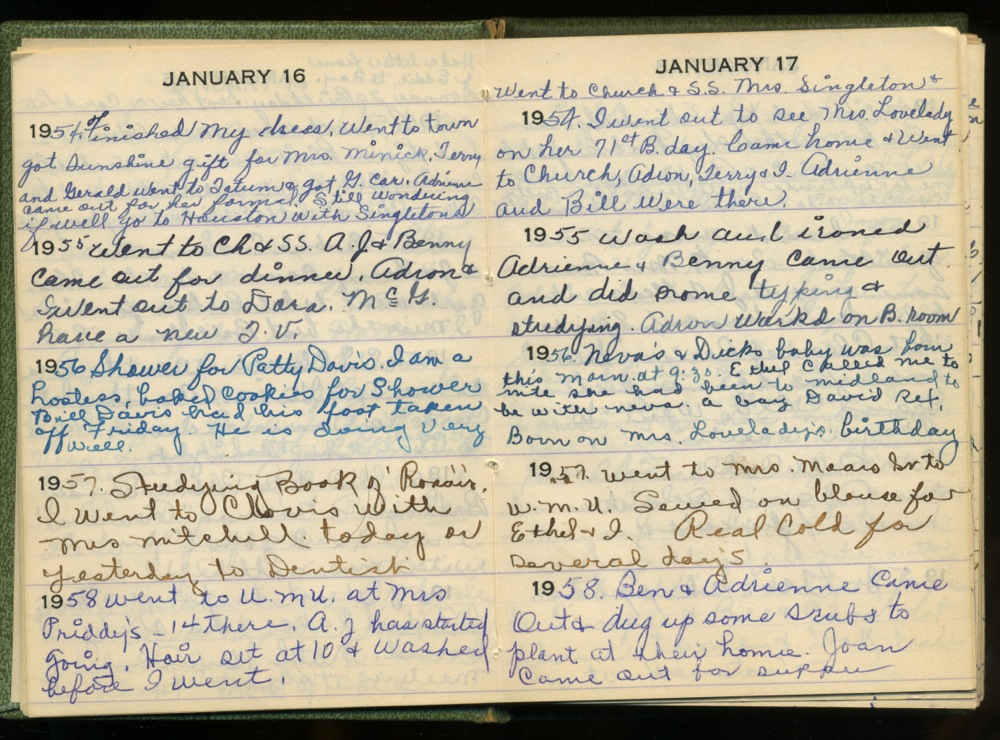 JANUARY 16
1954. Finished my dress. Went to town
got Sunshine gift for Mrs. Minick. Terry
and Gerald went to Tatum & got G. car. Adrienne
came out for her formal. Still wondering
if we'll go to Houston with Singletons
1955 Went to Ch & SS. A.J & Benny
came out for dinner. Adron &
I went out to Dora. McG.
have a new T.V.
1956 Shower for Patty Davis. I am a
hostess, baked cookies for Shower
Bill Davis had his foot taken
off Friday. He is doing very
well.
1957. Studying Book of
I went to Clovis with
Mrs Mitchell today or
yesterday to Dentist
1958 went to W.M.U. at Mrs
Priddy's - 14 there. A.J has started
going. Hair set at 10 & washed
before I went.
JANUARY 17
Went to Church & S.S. Mrs. Singleton &
1954. I went out to see Mrs. Lovelady
on her 71st B.day. Came home & Went
to Church, Adron, Terry & I. Adrienne
and Bill were there.
1955 Wash and ironed
Adrienne & Benny came out
and did some typing &
studying. Adron workd on B.room
1956. Neva's & Dicks baby was born
this morn. at 9:30. Ethel called me to
nite she had been to midland to
be with neva. a boy David Rex.
Born on Mrs. Lovelady's birthday
1957. went to Mrs. Mears to
W.M.U. Sewed on blouse for
Ethel & I. Real Cold for
several day's
1958. Ben & Adrienne Came
Out & dug up some scrubs to
plant at their home. Joan
Came out for